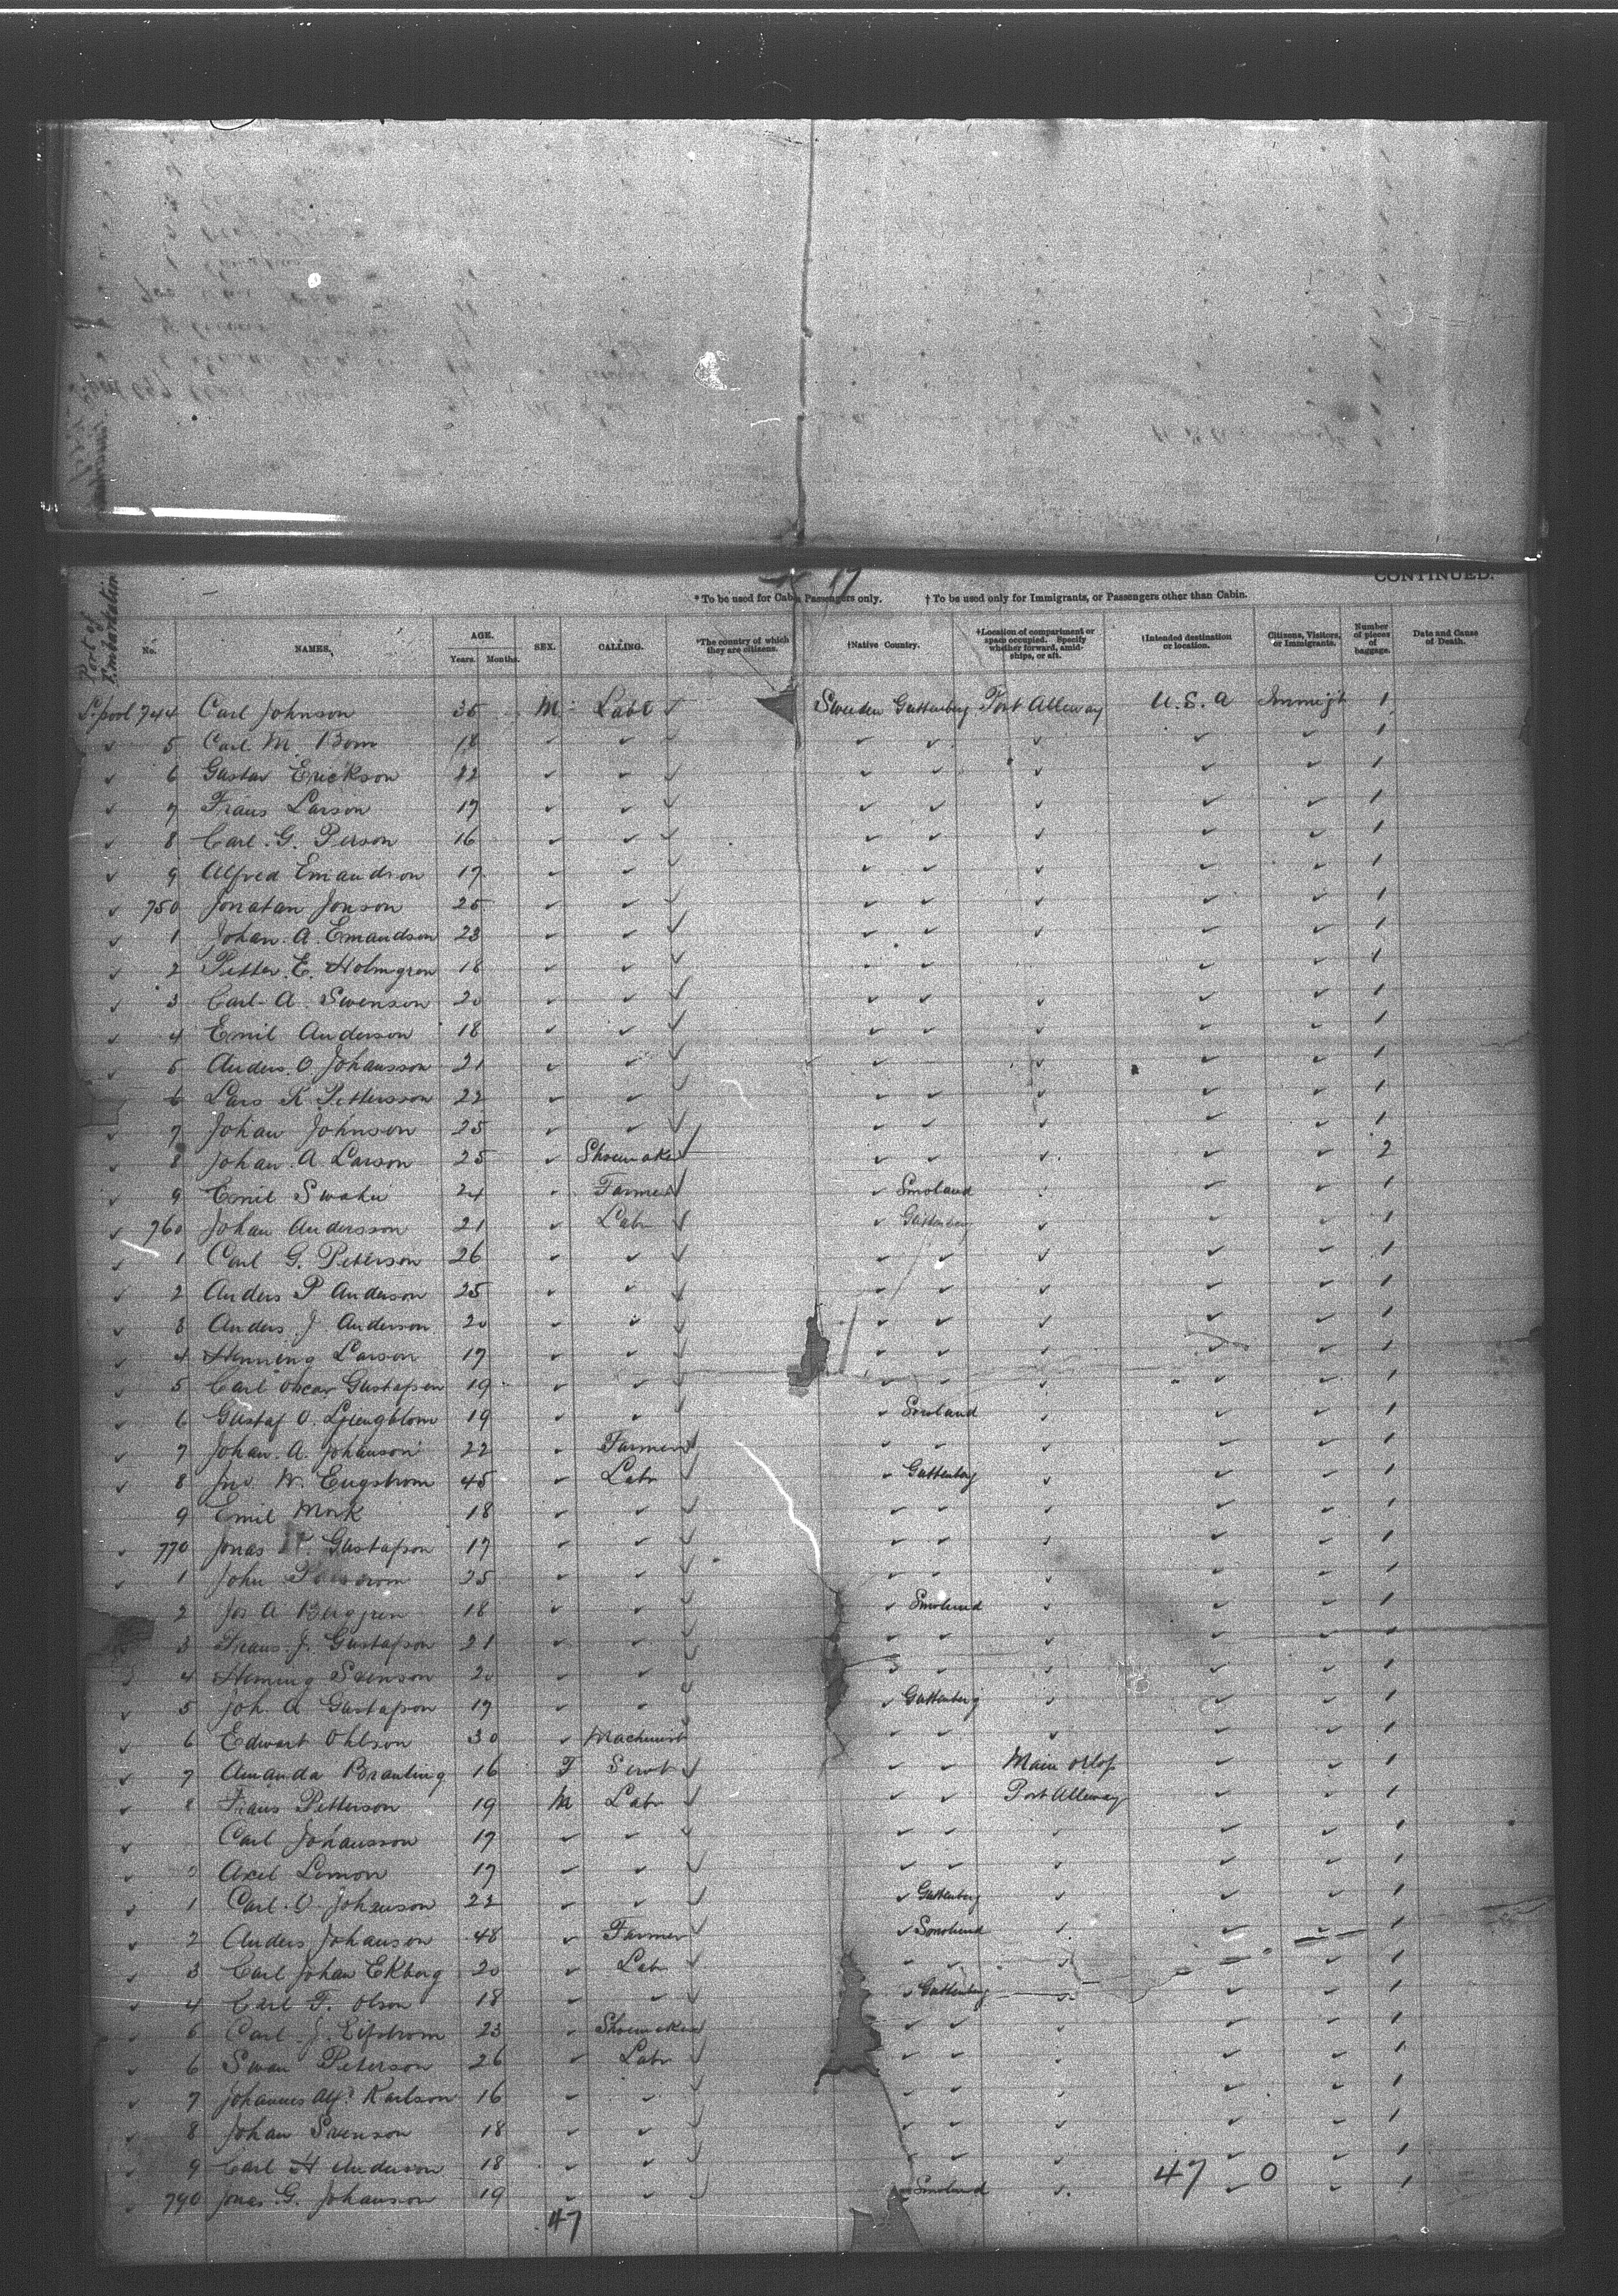 17
CONTINUED.
*To be used for Cabin Passengers only. †To be used only for Immigrants, or Passengers other than Cabin.
Port of Embarkation No. NAMES. AGE. Years. Months. SEX. CALLING. *The country of which they are citizens. †Native Country. †Location of compartment or space occupied. Specify whether forward, amidships, or aft. †Intended destination or location. Citizens, Visitors, or Immigrants. Number of pieces of baggage. Date and Cause of Death.
L'pool 744 Carl Johnson 35 M Labr ✓ Sweden Guttenberg Port Alleway U.S.A Immigt 1
✓ 5 Carl M. Bom 18 ✓ ✓ ✓ ✓ ✓ ✓ ✓ 1
✓ 6 Gustav Erickson 22 ✓ ✓ ✓ ✓ ✓ ✓ ✓ ✓ 1
✓ 7 Fraus Larson 17 ✓ ✓ ✓ ✓ ✓ ✓ ✓ ✓ 1
✓ 8 Carl. G. Person 16 ✓ ✓ ✓ ✓ ✓ ✓ ✓ ✓ 1
✓ 9 Alfred Emaudson 17 ✓ ✓ ✓ ✓ ✓ ✓ ✓ ✓ 1
✓ 750 Jonatan Jonson 25 ✓ ✓ ✓ ✓ ✓ ✓ ✓ ✓ 1
✓ 1 Johan. A. Emaudson 23 ✓ ✓ ✓ ✓ ✓ ✓ ✓ ✓ 1
✓ 2 Petter. E. Holmgren 18 ✓ ✓ ✓ ✓ ✓ ✓ ✓ 1
✓ 3 Carl A. Swenson 20 ✓ ✓ ✓ ✓ ✓ ✓ ✓ ✓ 1
✓ 4 Emil Anderson 18 ✓ ✓ ✓ ✓ ✓ ✓ ✓ ✓ 1
✓ 5 Anders. O. Johansson 21 ✓ ✓ ✓ ✓ ✓ ✓ ✓ ✓ 1
6 Lars K Pettersson 22 ✓ ✓ ✓ ✓ ✓ ✓ ✓ ✓ 1
✓ 7 Johan Johnson 25 ✓ ✓ ✓ ✓ ✓ ✓ ✓ ✓ 1
✓ 8 Johan. A Larson 25 ✓ Shoemaker ✓ ✓ ✓ ✓ ✓ ✓ 2
✓ 9 Emil Swahn 24 ✓ Farmer ✓ ✓ Smoland ✓ ✓ ✓ 1
✓ 760 Johan Andersson 21 ✓ Labr ✓ ✓ Guttenberg ✓ ✓ ✓ 1
✓ 1 Carl G. Peterson 26 ✓ ✓ ✓ ✓ ✓ ✓ ✓ ✓ 1
✓ 2 Anders P Anderson 25 ✓ ✓ ✓ ✓ ✓ ✓ ✓ ✓ 1
✓ 3 Anders J Anderson 20 ✓ ✓ ✓ ✓ ✓ ✓ ✓ ✓ 1
✓ 4 Henning Larson 17 ✓ ✓ ✓ ✓ ✓ ✓ ✓ ✓ 1
✓ 5 Carl Oscar Gustafson 19 ✓ ✓ ✓ ✓ ✓ ✓ ✓ ✓ 1
✓ 6 Gustaf O. Ljungblom 19 ✓ ✓ ✓ ✓ Smoland ✓ ✓ ✓ 1
✓ 7 Johan. A. Johanson 22 ✓ Farmer ✓ ✓ ✓ ✓ ✓ ✓ 1
✓ 8 Jno. W. Engstrom 45 ✓ Labr ✓ ✓ Guttenberg ✓ ✓ ✓ 1
9 Emil Mork 18 ✓ ✓ ✓ ✓ ✓ ✓ ✓ ✓ 1
✓ 770 Jonas Gustafson 17 ✓ ✓ ✓ ✓ ✓ ✓ ✓ ✓ 1
✓ 1 John 25 ✓ ✓ ✓ ✓ ✓ ✓ ✓ ✓ 1
2 Jos A Berggren 18 ✓ ✓ ✓ ✓ Smolund ✓ ✓ ✓ 1
3 Fraus. J. Gustafson 21 ✓ ✓ ✓ ✓ ✓ ✓ ✓ ✓ 1
4 Heming Svenson 20 ✓ ✓ ✓ ✓ ✓ ✓ ✓ ✓ 1
✓ 5 Joh. A Gustafson 17 ✓ ✓ ✓ ✓ Guttenberg ✓ ✓ ✓ 1
✓ 6 Edwart Ohlson 30 ✓ Machinist ✓ ✓ ✓ ✓ ✓ ✓ 1
✓ 7 Amanda Branting 16 F Servt ✓ ✓ ✓ Main Orlop ✓ ✓ 1
✓ 8 Fraus Petterson 19 M Labr ✓ ✓ ✓ Port Alleway ✓ ✓ 1
✓ Carl Johansson 17 ✓ ✓ ✓ ✓ ✓ ✓ ✓ ✓ 1
✓ Axel Lemon 17 ✓ ✓ ✓ ✓ ✓ ✓ ✓ ✓ 1
✓ 1 Carl. O. Johanson 22 ✓ ✓ ✓ ✓ Guttenberg ✓ ✓ ✓ 1
✓ 2 Anders Johanson 48 ✓ Farmer ✓ ✓ Smolund ✓ ✓ ✓ 1
✓ 3 Carl Johan Ekberg 20 ✓ Labr ✓ ✓ ✓ ✓ ✓ ✓ 1
✓ 4 Carl F. Olson 18 ✓ ✓ ✓ ✓ Guttenberg ✓ ✓ ✓ 1
✓ 5 Carl. J. Eifstrom 23 ✓ Shoemaker ✓ ✓ ✓ ✓ ✓ ✓ 1
✓ 6 Swan Peterson 26 ✓ Labr ✓ ✓ ✓ ✓ ✓ ✓ 1
✓ 7 Johannes Alfd. Karlson 16 ✓ ✓ ✓ ✓ ✓ ✓ ✓ ✓ 1
✓ 8 Johan Svenson 18 ✓ ✓ ✓ ✓ ✓ ✓ ✓ ✓ 1
✓ 9 Carl H Anderson 18 ✓ ✓ ✓ ✓ ✓ ✓ ✓ ✓ 1
✓ 790 Jonas. G. Johanson 19 ✓ ✓ ✓ Smolund ✓ ✓ ✓ 1
47 0
47